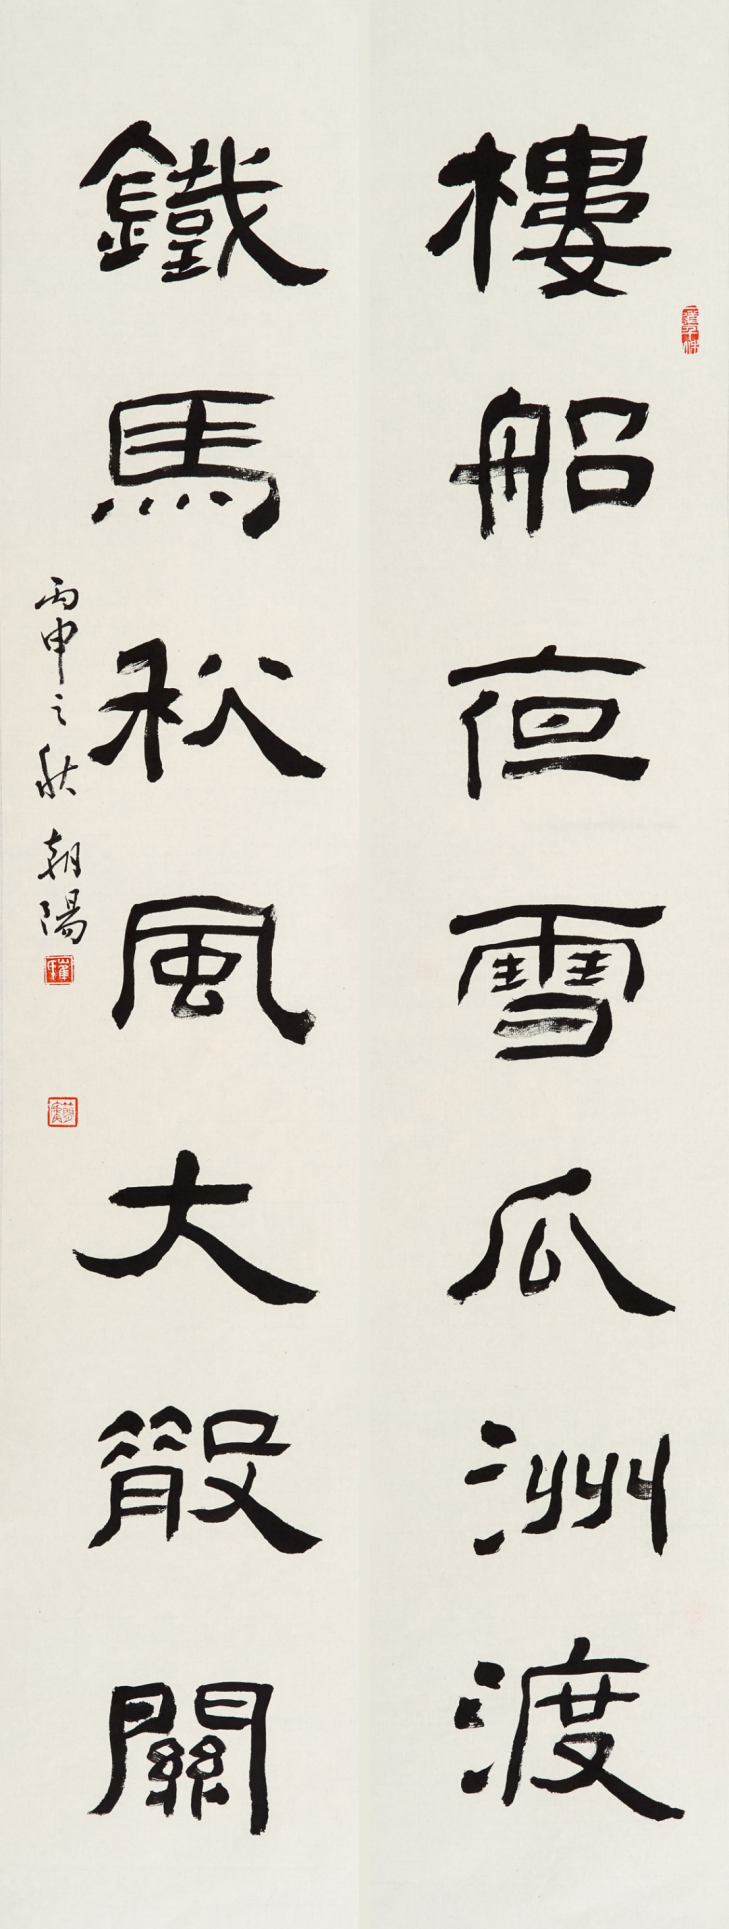 樓船夜雪瓜洲渡
鐵馬秋風大散關
丙申之秋 朝陽